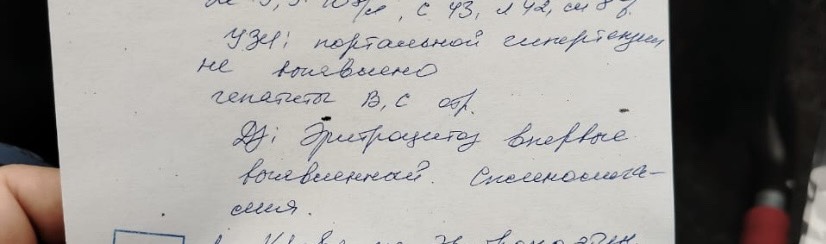 9/л, с 43, л 42, см 8
УЗИ: портальной гипертензии
не выявлено
гепатиты В, С отр.
DS: Эритроцитоз впервые
выявленный. Спленомега-
лия.